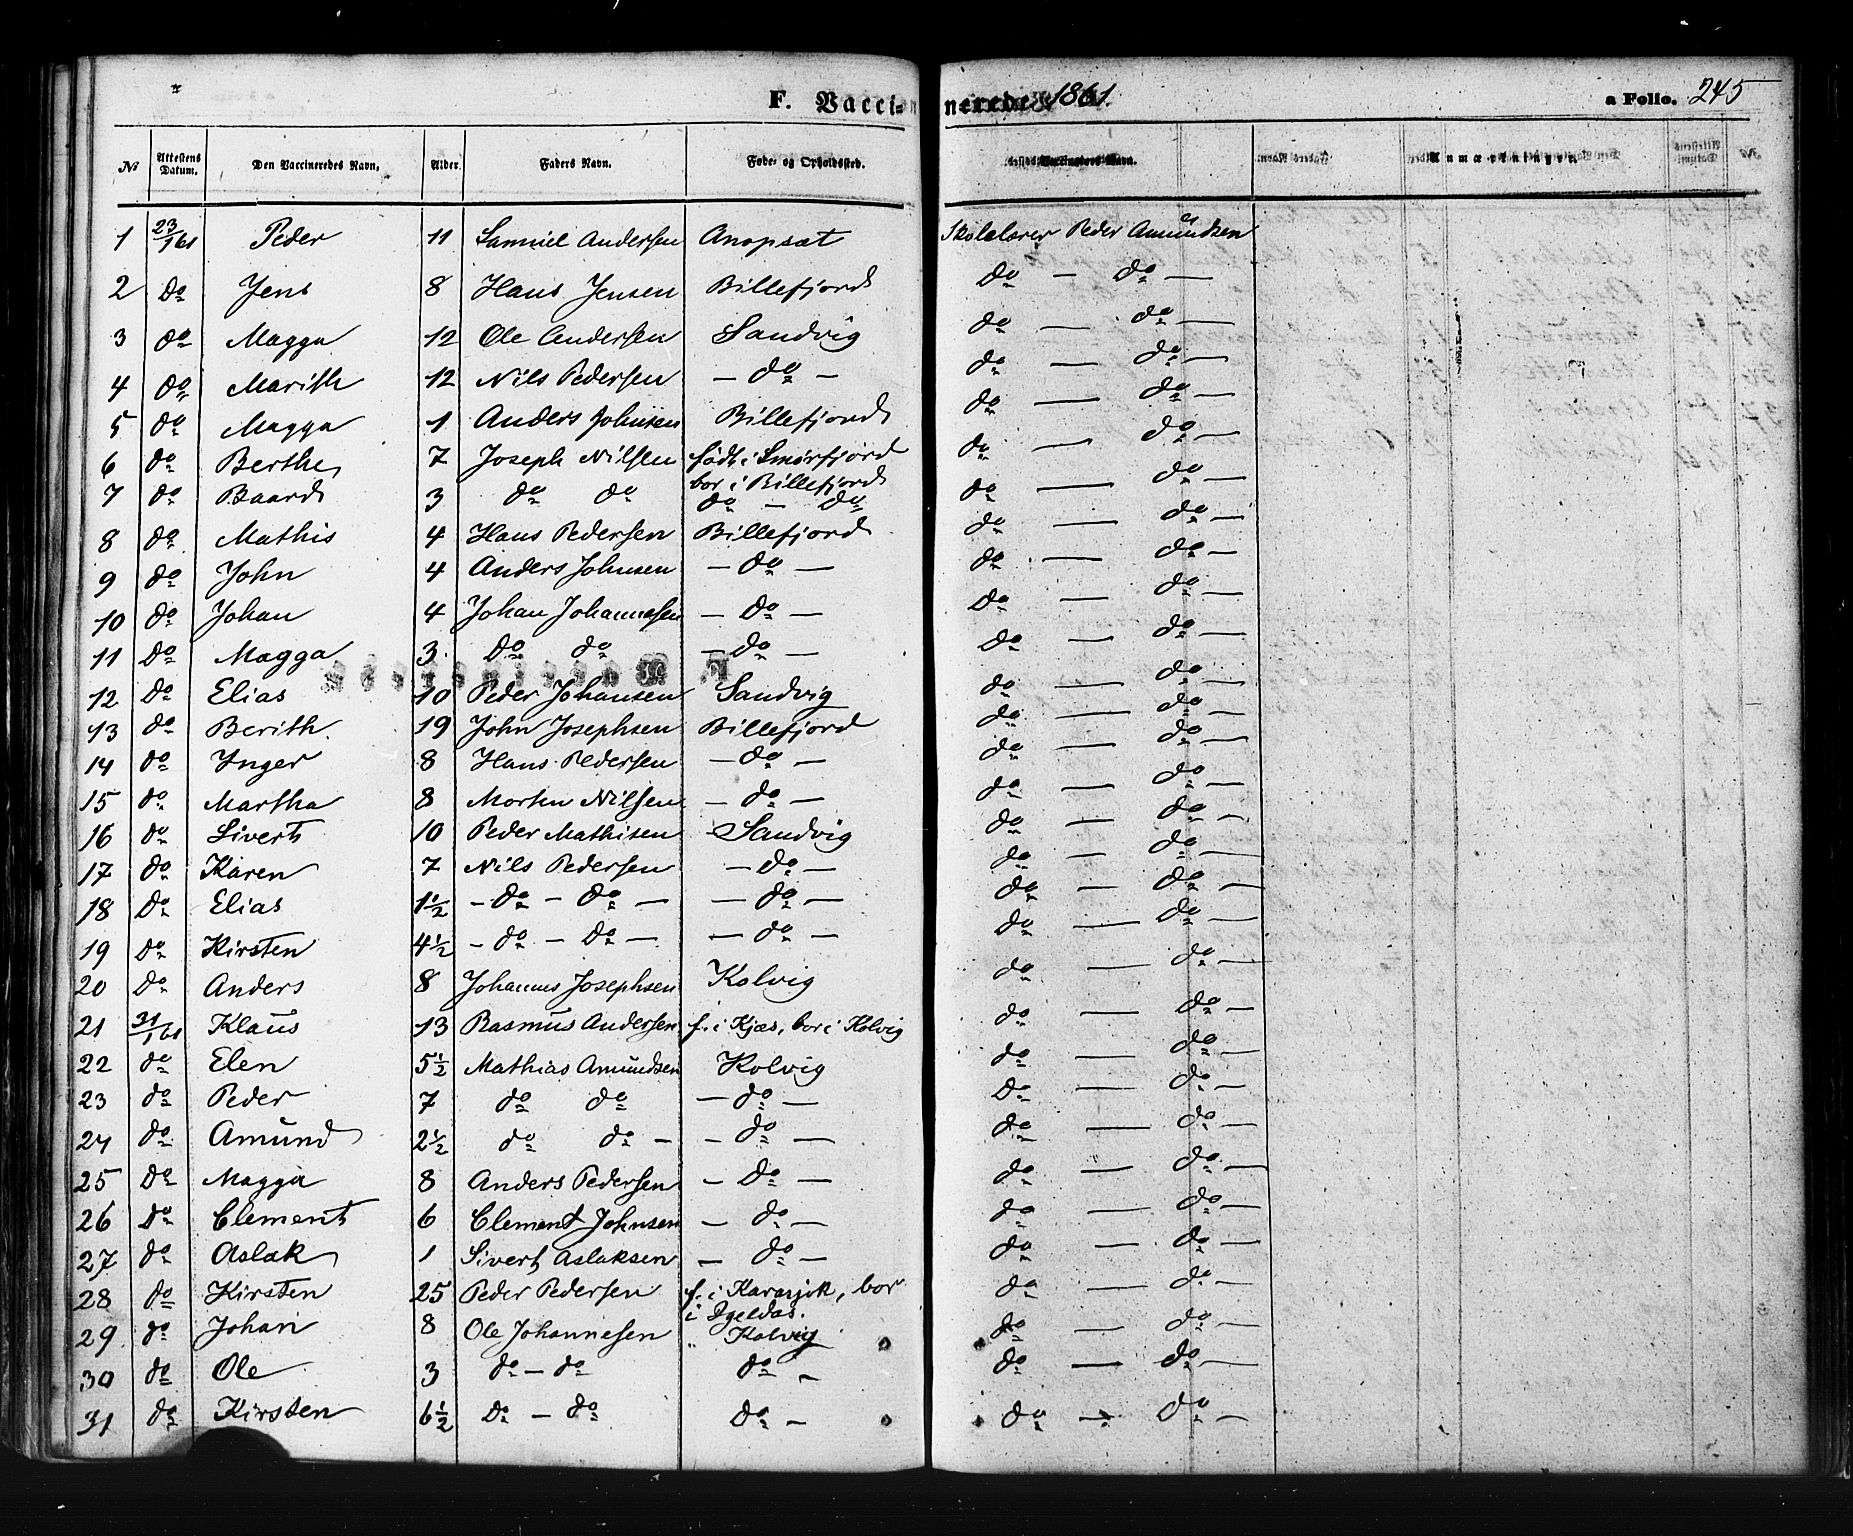 F. Vaccinerede 1861. a Folio. 245
No | Attestens Datum. | Den Vaccineredes Navn. | Alder. | Faders Navn. | Føde- og Opholdssted. | Vaccinateurs Navn. | Anmærkninger.
1 | 23/1 61 | Peder | 11 | Samuel Andersen | Anopsæt | Skolelærer Peder Amundsen
2 | do | Jens | 8 | Hans Jensen | Billefjord | do — do —
3 | do | Magga | 12 | Ole Andersen | Sandvig | do — do —
4 | do | Marith | 12 | Nils Pedersen | — do — | do — do —
5 | do | Magga | 1 | Anders Johnsen | Billefjord | do — do —
6 | do | Berthe | 7 | Joseph Nilsen | født i Smørfjord bor i Billefjord | do — do —
7 | do | Baard | 3 | do do | do — do | do — do —
8 | do | Mathis | 4 | Hans Pedersen | Billefjord | do — do —
9 | do | John | 4 | Anders Johnsen | — do — | do — do —
10 | do | Johan | 4 | Johan Johannesen | — do — | do — do —
11 | do | Magga | 3 | do do | — do — | do — do —
12 | do | Elias | 10 | Peder Johansen | Sandvig | do — do —
13 | do | Berith | 19 | John Josephsen | Billefjord | do — do —
14 | do | Inger | 8 | Hans Pedersen | — do — | do — do —
15 | do | Martha | 8 | Morten Nilsen | — do — | do — do —
16 | do | Sivert | 10 | Peder Mathisen | Sandvig | do — do —
17 | do | Karen | 7 | Nils Pedersen | — do — | do — do —
18 | do | Elias | 1 1/2 | — do — do — | — do — | do — do —
19 | do | Kirsten | 4 1/2 | — do — do — | — do — | do — do —
20 | do | Anders | 8 | Johannes Josephsen | Kolvig | do — do —
21 | 31/1 61 | Klaus | 13 | Rasmus Andersen | f. i Kjæs, bor i Kolvig | do — do —
22 | do | Elen | 5 1/2 | Mathias Amundsen | Kolvig | do — do —
23 | do | Peder | 7 | do do | — do — | do — do —
24 | do | Amund | 2 1/2 | do do — | — do — | do — do —
25 | do | Magga | 8 | Anders Pedersen | — do — | do — do —
26 | do | Clement | 6 | Clement Johnsen | — do — | do — do —
27 | do | Aslak | 1 | Sivert Aslaksen | — do — | do — do —
28 | do | Kirsten | 25 | Peder Pedersen | f. i Karasjok, bor i Igeldas. | do — do —
29 | do | Johan | 8 | Ole Johannesen | " Kolvig | do — do —
30 | do | Ole | 3 | do — do | do — | do — do —
31 | do | Kirsten | 6 1/2 | do — do | do — | do — do —